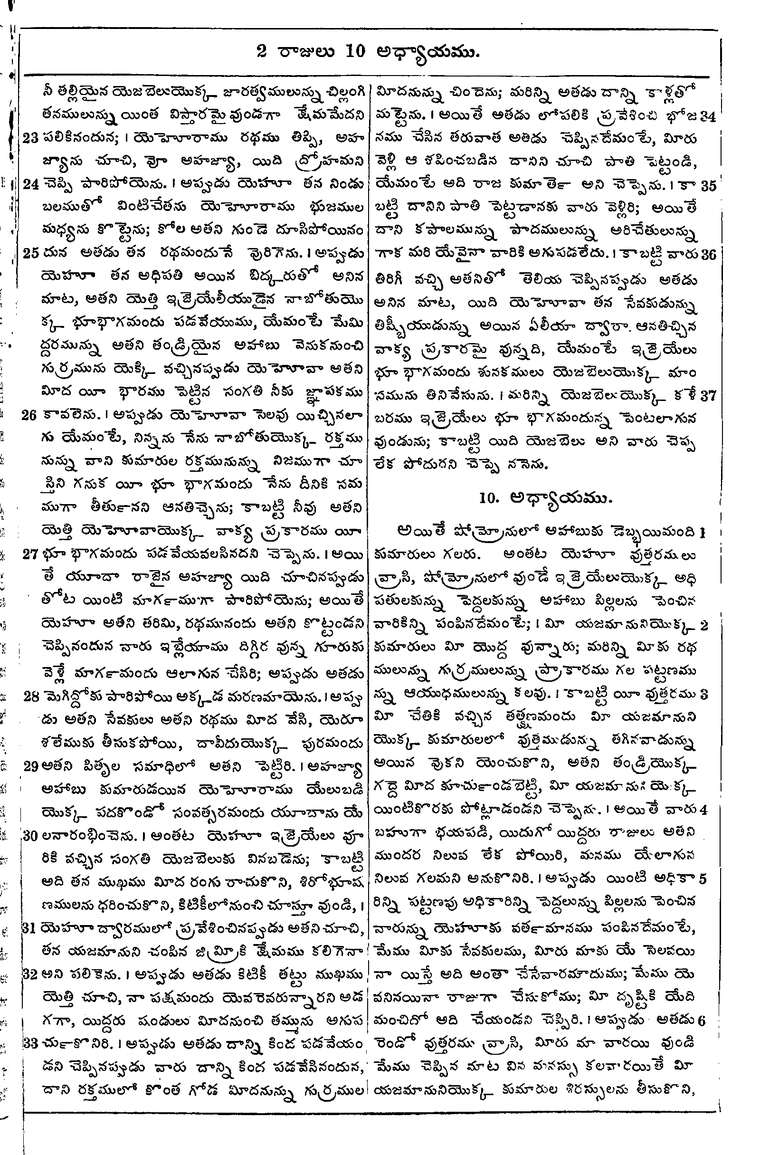 2 రాజులు 10 అధ్యాయము.
నీ తల్లియైన యెజబెలుయొక్క జారత్వములున్ను చిల్లంగి
తనములున్ను యింత విస్తారమై వుండగా క్షేమమేదని
23 పలికినందున; । యెహూరాము రథము తిప్పి, అహ
జ్యాను చూచి, హో అహజ్యా, యిది ద్రోహమని
24 చెప్పి పారిపోయెను. । అప్పుడు యెహూ తన నిండు
బలముతో వింటిచేతను యెహూరాము భుజముల
మధ్యను కొట్టెను; కోల అతని గుండె దూసిపోయినం
25 దున అతడు తన రథమందునే వొరిగెను. । అప్పుడు
యెహూ తన అధిపతి అయిన బిద్కరుతో అనిన
మాట, అతని యెత్తి ఇజ్రెయేలీయుడైన నాబోతుయొ
క్క భూభాగమందు పడవేయుము, యేమంటే మేమి
ద్దరమున్ను అతని తండ్రియైన అహాబు వెనుకనుంచి
గుర్రమును యెక్కి వచ్చినప్పుడు యెహోవా అతని
మీద యీ భారము పెట్టిన సంగతి నీకు జ్ఞాపకము
26 కావలెను. । అప్పుడు యెహోవా సెలవు యిచ్చినలా
గు యేమంటే, నిన్నను నేను నాబోతుయొక్క రక్తము
నున్ను వాని కుమారుల రక్తమునున్ను నిజముగా చూ
స్తిని గనుక యీ భూ భాగమందు నేను దీనికి సమ
ముగా తీర్తునని ఆనతిచ్చెను; కాబట్టి నీవు అతని
యెత్తి యెహోవాయొక్క వాక్య ప్రకారము యీ
27 భూ భాగమందు పడవేయవలసినదని చెప్పెను. । అయి
తే యూదా రాజైన అహజ్యా యిది చూచినప్పుడు
తోట యింటి మార్గముగా పారిపోయెను; అయితే
యెహూ అతని తరిమి, రథమునందు అతని కొట్టండని
చెప్పినందున వారు ఇబ్లేయాము దిగ్గిర వున్న గూరుకు
వెళ్లే మార్గమందు ఆలాగున చేసిరి; అప్పుడు అతడు
28 మెగిద్దోకు పారిపోయి అక్కడ మరణమాయెను. । అప్పు
డు అతని సేవకులు అతని రథము మీద వేసి, యెరూ
శలేముకు తీసుకపోయి, దావీదుయొక్క పురమందు
29 అతని పితృల సమాధిలో అతని పెట్టిరి. । అహజ్యా
అహాబు కుమారుడయిన యెహూరాము యేలుబడి
యొక్క పదకొండో సంవత్సరమందు యూదాను యే
30 లనారంభించెను. । అంతట యెహూ ఇజ్రెయేలు వూ
రికి వచ్చిన సంగతి యెజబెలుకు వినబడెను; కాబట్టి
అది తన ముఖము మీద రంగు రాచుకొని, శిరోభూష
ణములను ధరించుకొని, కిటికీలోనుంచి చూస్తూ వుండి, ।
31 యెహూ ద్వారములో ప్రవేశించినప్పుడు అతని చూచి,
తన యజమానుని చంపిన జిమ్రీకి క్షేమము కలిగెనా
32 అని పలికెను. । అప్పుడు అతడు కిటికీ తట్టు ముఖము
యెత్తి చూచి, నా పక్షమందు యెవరెవరున్నారని అడ
గగా, యిద్దరు షండులు మీదనుంచి తమ్మును అగుప
33 ర్చుకొనిరి. । అప్పుడు అతడు దాన్ని కింద పడవేయం
డని చెప్పినప్పుడు వారు దాన్ని కింద పడవేసినందున,
దాని రక్తములో కొంత గోడ మీదనున్ను గుర్రముల
మీదనున్ను చిందెను; మరిన్ని అతడు దాన్ని కాళ్లతో
మట్టెను. । అయితే అతడు లోపలికి ప్రవేశించి భోజ 34
నము చేసిన తరువాత అతిడు చెప్పినదేమంటే, మీరు
వెళ్లి ఆ శపించబడిన దానిని చూచి పాతి పెట్టండి,
యేమంటే అది రాజ కుమార్తె అని చెప్పెను. । కా 35
బట్టి దానిని పాతి పెట్టడానకు వారు వెళ్లిరి; అయితే
దాని కపాలమున్ను పాదములున్ను అరిచేతులున్ను
గాక మరి యేవైనా వారికి అగుపడలేదు. । కాబట్టి వారు 36
తిరిగీ వచ్చి అతనితో తెలియ చెప్పినప్పుడు అతడు
అనిన మాట, యిది యెహోవా తన సేవకుడున్ను
తిష్బీయుడున్ను అయిన ఏలీయా ద్వారా. ఆనతిచ్చిన
వాక్య ప్రకారమై వున్నది, యేమంటే ఇజ్రెయేలు
భూ భాగమందు శునకములు యెజబెలుయొక్క మాం
సమును తినివేసును. । మరిన్ని యెజబెలుయొక్క కళే 37
బరము ఇజ్రెయేలు భూ భాగమందున్న పెంటలాగున
వుండును; కాబట్టి యిది యెజబెలు అని వారు చెప్ప
లేక పోదురని చెప్పె ననెను.
10. అధ్యాయము.
అయితే షోమ్రోనులో అహాబుకు డెబ్భయిమంది 1
కుమారులు గలరు. అంతట యెహూ వుత్తరములు
వ్రాసి, షోమ్రోనులో వుండే ఇజ్రెయేలుయొక్క అధి
పతులకున్ను పెద్దలకున్ను అహాబు పిల్లలను పెంచిన
వారికిన్ని పంపినదేమంటే; । మీ యజమానునియొక్క 2
కుమారులు మీ యొద్ద వున్నారు; మరిన్ని మీకు రథ
ములున్ను గుర్రములున్ను ప్రాకారము గల పట్టణము
న్ను ఆయుధములున్ను కలవు. । కాబట్టి యీ వుత్తరము 3
మీ చేతికి వచ్చిన తత్క్షణమందు మీ యజమానుని
యొక్క కుమారులలో వుత్తముడున్ను తగినవాడున్ను
అయిన వొకని యెంచుకొని, అతని తండ్రియొక్క
గద్దె మీద కూర్చుండబెట్టి, మీ యజమానునియొక్క
యింటికొరకు పోట్లాడండని చెప్పెను. । అయితే వారు 4
బహుగా భయపడి, యిదుగో యిద్దరు రాజులు అతని
ముందర నిలువ లేక పోయిరి, మనము యేలాగున
నిలువ గలమని అనుకొనిరి. । అప్పుడు యింటి అధికా 5
రిన్ని పట్టణపు అధికారిన్ని పెద్దలున్ను పిల్లలను పెంచిన
వారున్ను యెహూకు వర్తమానము పంపినదేమంటే,
మేము మీకు సేవకులము, మీరు మాకు యే సెలవయి
నా యిస్తే అది అంతా చేసేవారమాదుము; మేము యె
వనినయినా రాజుగా చేసుకోము; మీ దృష్టికి యేది
మంచిదో అది చేయండని చెప్పిరి. । అప్పుడు అతడు 6
రెండో వుత్తరము వ్రాసి, మీరు మా వారయి వుండి
మేము చెప్పిన మాట విన మనస్సు కలవారయితే మీ
యజమానునియొక్క కుమారుల శిరస్సులను తీసుకొని,